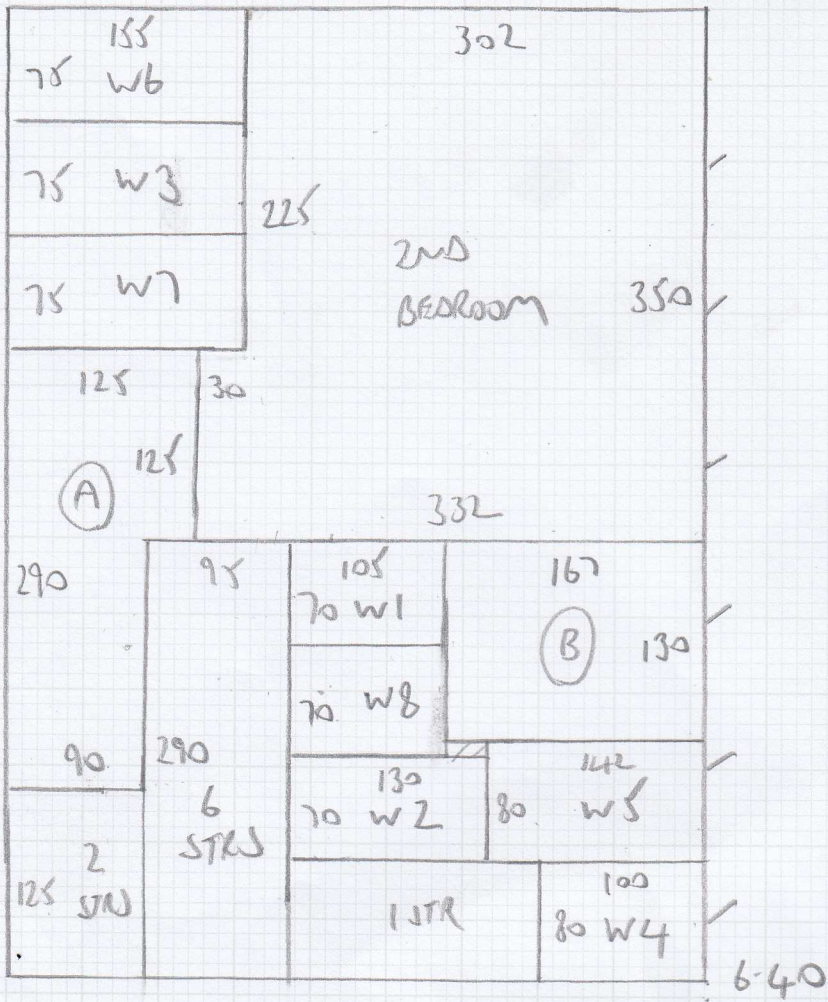 155
75 W6
302
75 W3
225
2ND
BEDROOM
350
75 W7
125
30
125
A
332
290
95
105
70 W1
167
B
130
70 W8
90
290
6
STRS
130
70 W2
142
80 W5
2
STRS
125
1 STR
100
80 W4
6-40